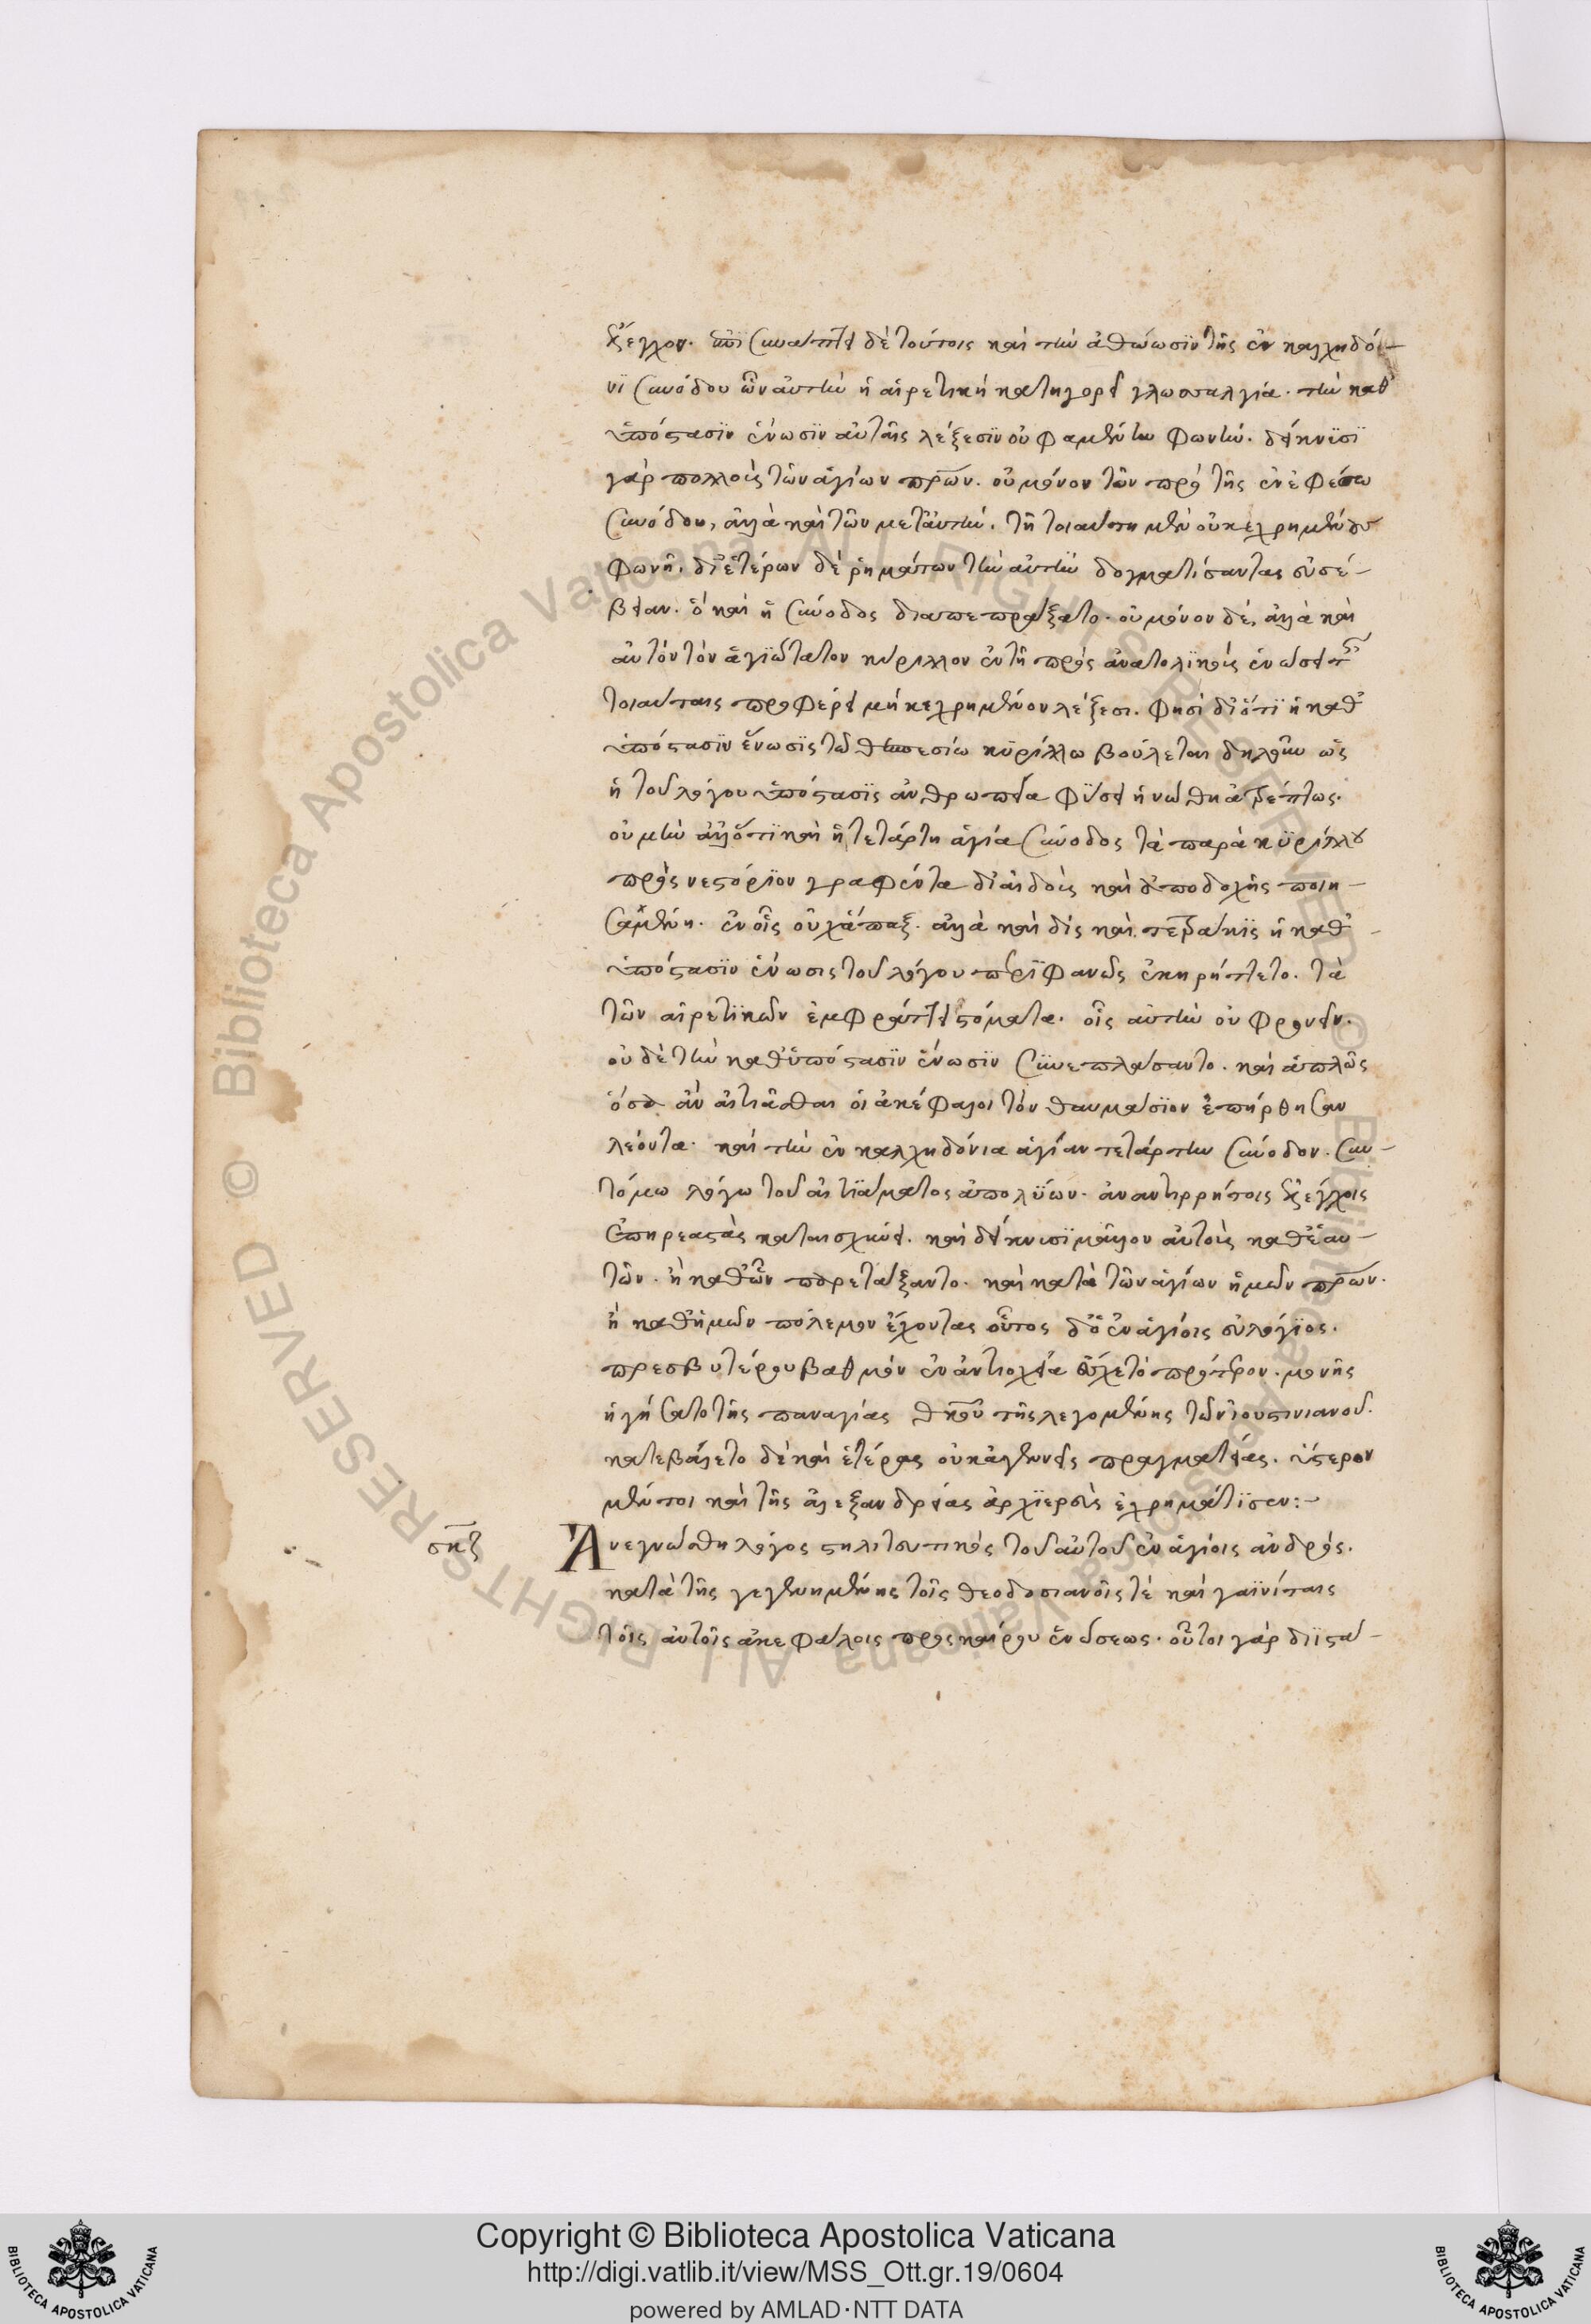 ἔλεγχον. ἐπισυνάπτει δὲ τούτοις καὶ τὴν ἀθώωσϊν τῆς ἐν καλχηδό-
νϊ συνόδου ὧν αὐτὴν ἡ αἱρετικὴ κατηγορεῖ γλωσσαλγία. τὴν καθ
ὑπόστασϊν ἕνωσϊν αὐταῖς λέξεσϊν οὐ φαμένην φωνήν. δείκνϋσϊ
γὰρ πολλοὺς τῶν ἁγίων πρων. οὐ μόνον τῶν πρὸ τῆς ἐν ἐφέσω
συνόδου, ἀλλὰ καὶ τῶν μετ αὐτήν. τῇ τοιαύτη μὲν οὐ κεχρημένους
φωνῇ. δϊ ἑτέρων δὲ ῥημάτων τὴν αὐτὴν δογματίσαντας εὐσέ-
βειαν. ὃ καὶ ἡ σύνοδος διαπεπράξατο. οὐ μόνον δέ, ἀλλὰ καὶ
αὐτὸν τὸν ἁγϊώτατον κύριλλον ἐν τῇ πρὸς ἀνατολϊκοὺς ἑνώσει τ
τοιαύταις προφέρει μὴ κεχρημένον λέξεσι. φησὶ δϊότϊ ἡ καθ
ὑπόστασϊν ἕνωσϊς τῶ θεσπεσίω κϋρίλλω βούλεται δηλοῦν ὡς
ἡ τοῦ λόγου ὑπόστασϊς ἀνθρωπεία φϋσει ἡνώθη ἀτρέπτως.
οὐ μὴν ἀλλ ὅτϊ καὶ ἡ τετάρτη ἁγία σύνοδος τὰ παρὰ κϋρίλλου
πρὸς νεστόρϊον γραφέντα δϊ αἰδοῦς καὶ ἀποδοχῆς ποιη-
σαμένη. ἐν οἷς οὐχ ἅπαξ. ἀλλὰ καὶ δὶς καὶ τετρακϊς ἡ καθ
ὑπόστασϊν ἕνωσις τοῦ λόγου περϊφανῶς ἐκηρύττετο. τὰ
τῶν αἱρετϊκῶν ἐμφράττει στόματα. οἷς αὐτὴν οὐ φρονεῖν.
οὐδὲ τὴν καθ ὑπόστασϊν ἕνωσϊν συνεπλάσαντο. καὶ ἁπλῶς
ὅσα ἂν αἰτιᾶσθαι οἱ ἀκέφαλοι τὸν θαυμάσϊον ἐπήρθησαν
λέοντα. καὶ τὴν ἐν καλχηδόνια ἁγίαν τετάρτην σύνοδον. συν-
τόμω λόγω τοῦ αἰτϊάματος ἀπολϋων. ἀναντιρρήτοις ἐλέγχοις
ἐπηρεαστὰς καταισχύνει. καὶ δείκνυσϊ μᾶλλον αὐτοὺς καθ ἑαυ-
τῶν. ἢ καθ ὧν παρετάξαντο. καὶ κατὰ τῶν ἁγίων ἡμῶν πρων.
ἢ καθ ἡμῶν πόλεμον ἔχοντας οὗτος δ ὁ ἐν ἁγίοις εὐλόγϊος.
πρεσβυτέρου βαθμὸν ἐν ἀντιοχεία εἶχε τὸ πρότερον. μονῆς
ἡγήσατο τῆς παναγίας θκου τῆς λεγομένης τῶν ἰουστινιανοῦ.
κατεβάλετο δὲ καὶ ἑτέρας οὐκ ἀγεννεῖς πραγματείας. ὕστερον
μέντοι καὶ τῆς ἀλεξανδρείας ἀρχϊερεὺς ἐχρημάτϊσεν:-
σκζ Ἀνεγνώσθη λόγος στηλιτευτικὸς τοῦ αὐτοῦ ἐν ἁγίοις ἀνδρός.
κατὰ τῆς γεγενημένης τοῖς θεοδοσιανοῖς τὲ καὶ γαϊνίταις
τοῖς αὐτοῖς ἀκεφάλοις προσκαίρου ἑνώσεως. οὗτοι γὰρ δϊϊστά-
Copyright © Biblioteca Apostolica Vaticana
http://digi.vatlib.it/view/MSS_Ott.gr.19/0604
powered by AMLAD·NTT DATA